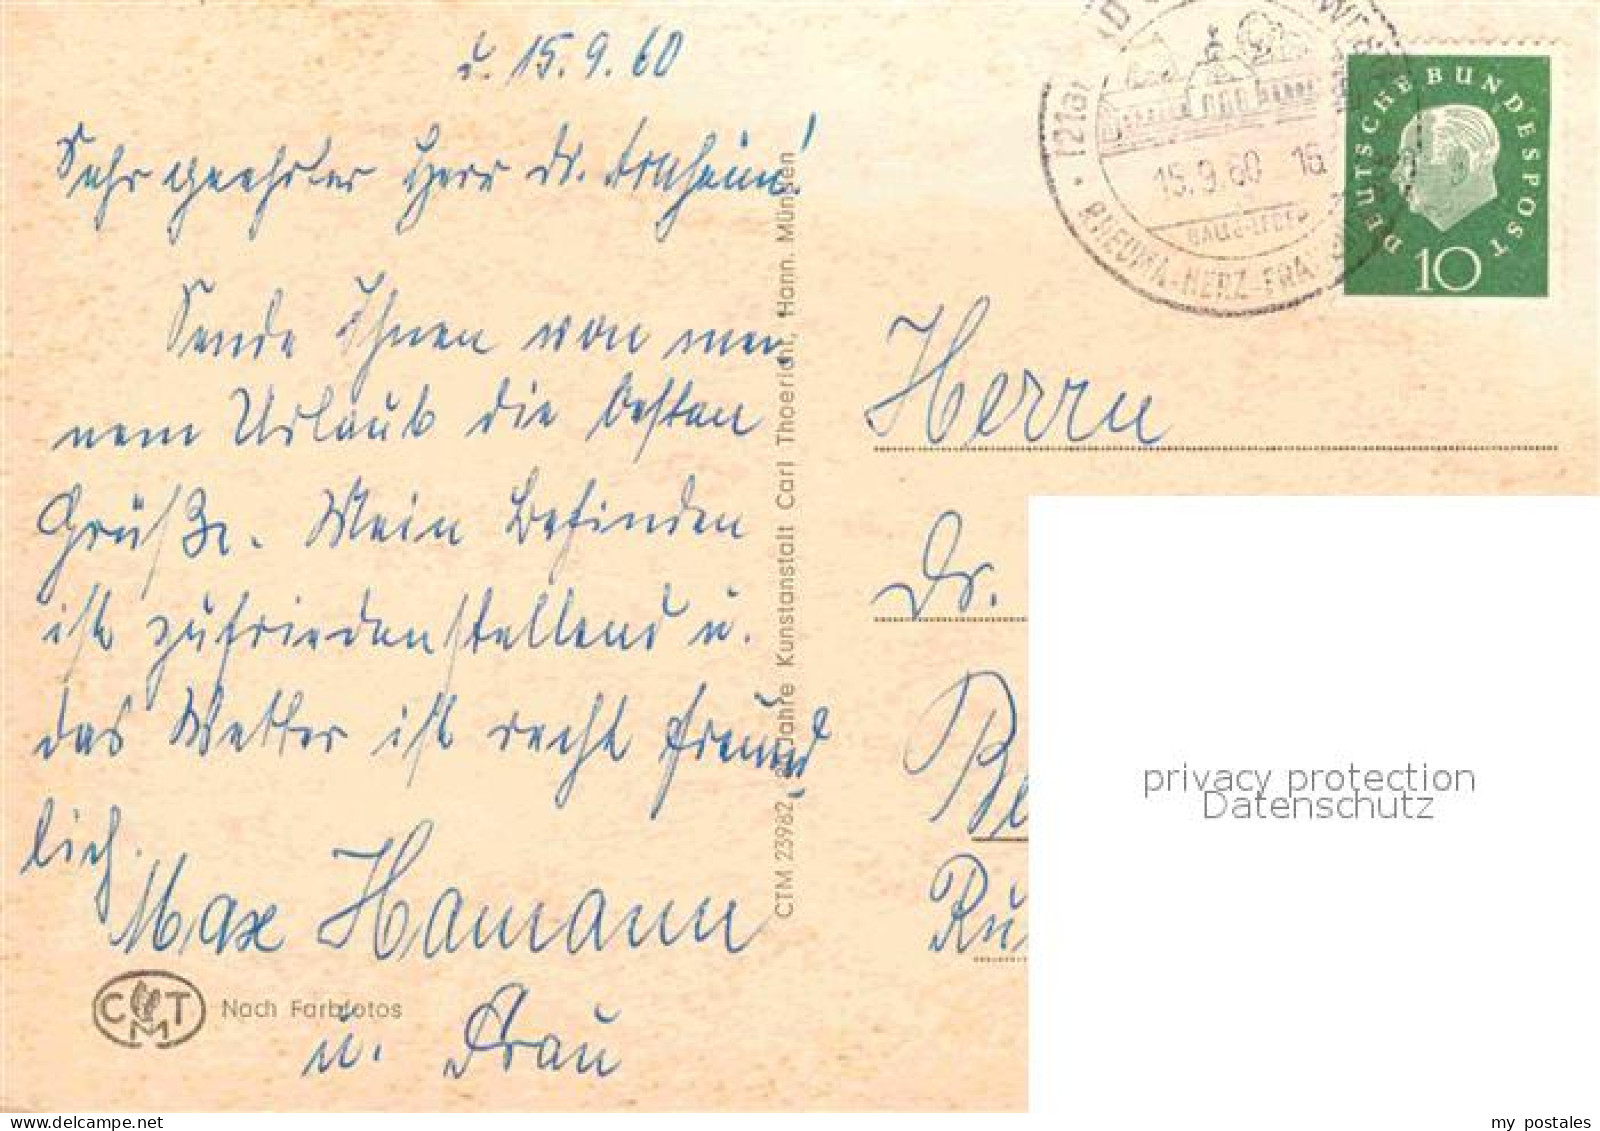 d. 15.9.60
Sehr geehrter Herr Dr. Arnheim!
Sende Ihnen von mei-
nem Urlaub die besten
Grüße. Mein Befinden
ist zufriedenstellend u.
das Wetter ist recht freund
lich.
Max Hamann
u. Frau
CMT
Nach Farbfotos
CTM 23982 Jahre Kunstanstalt Carl Thoericht, Hann. Münden
15.9.60 16
RHEUMA-HERZ-FRAU
DEUTSCHE BUNDESPOST
10
Herrn
Dr.
privacy protection
Datenschutz
www.delcampe.net
my_postales